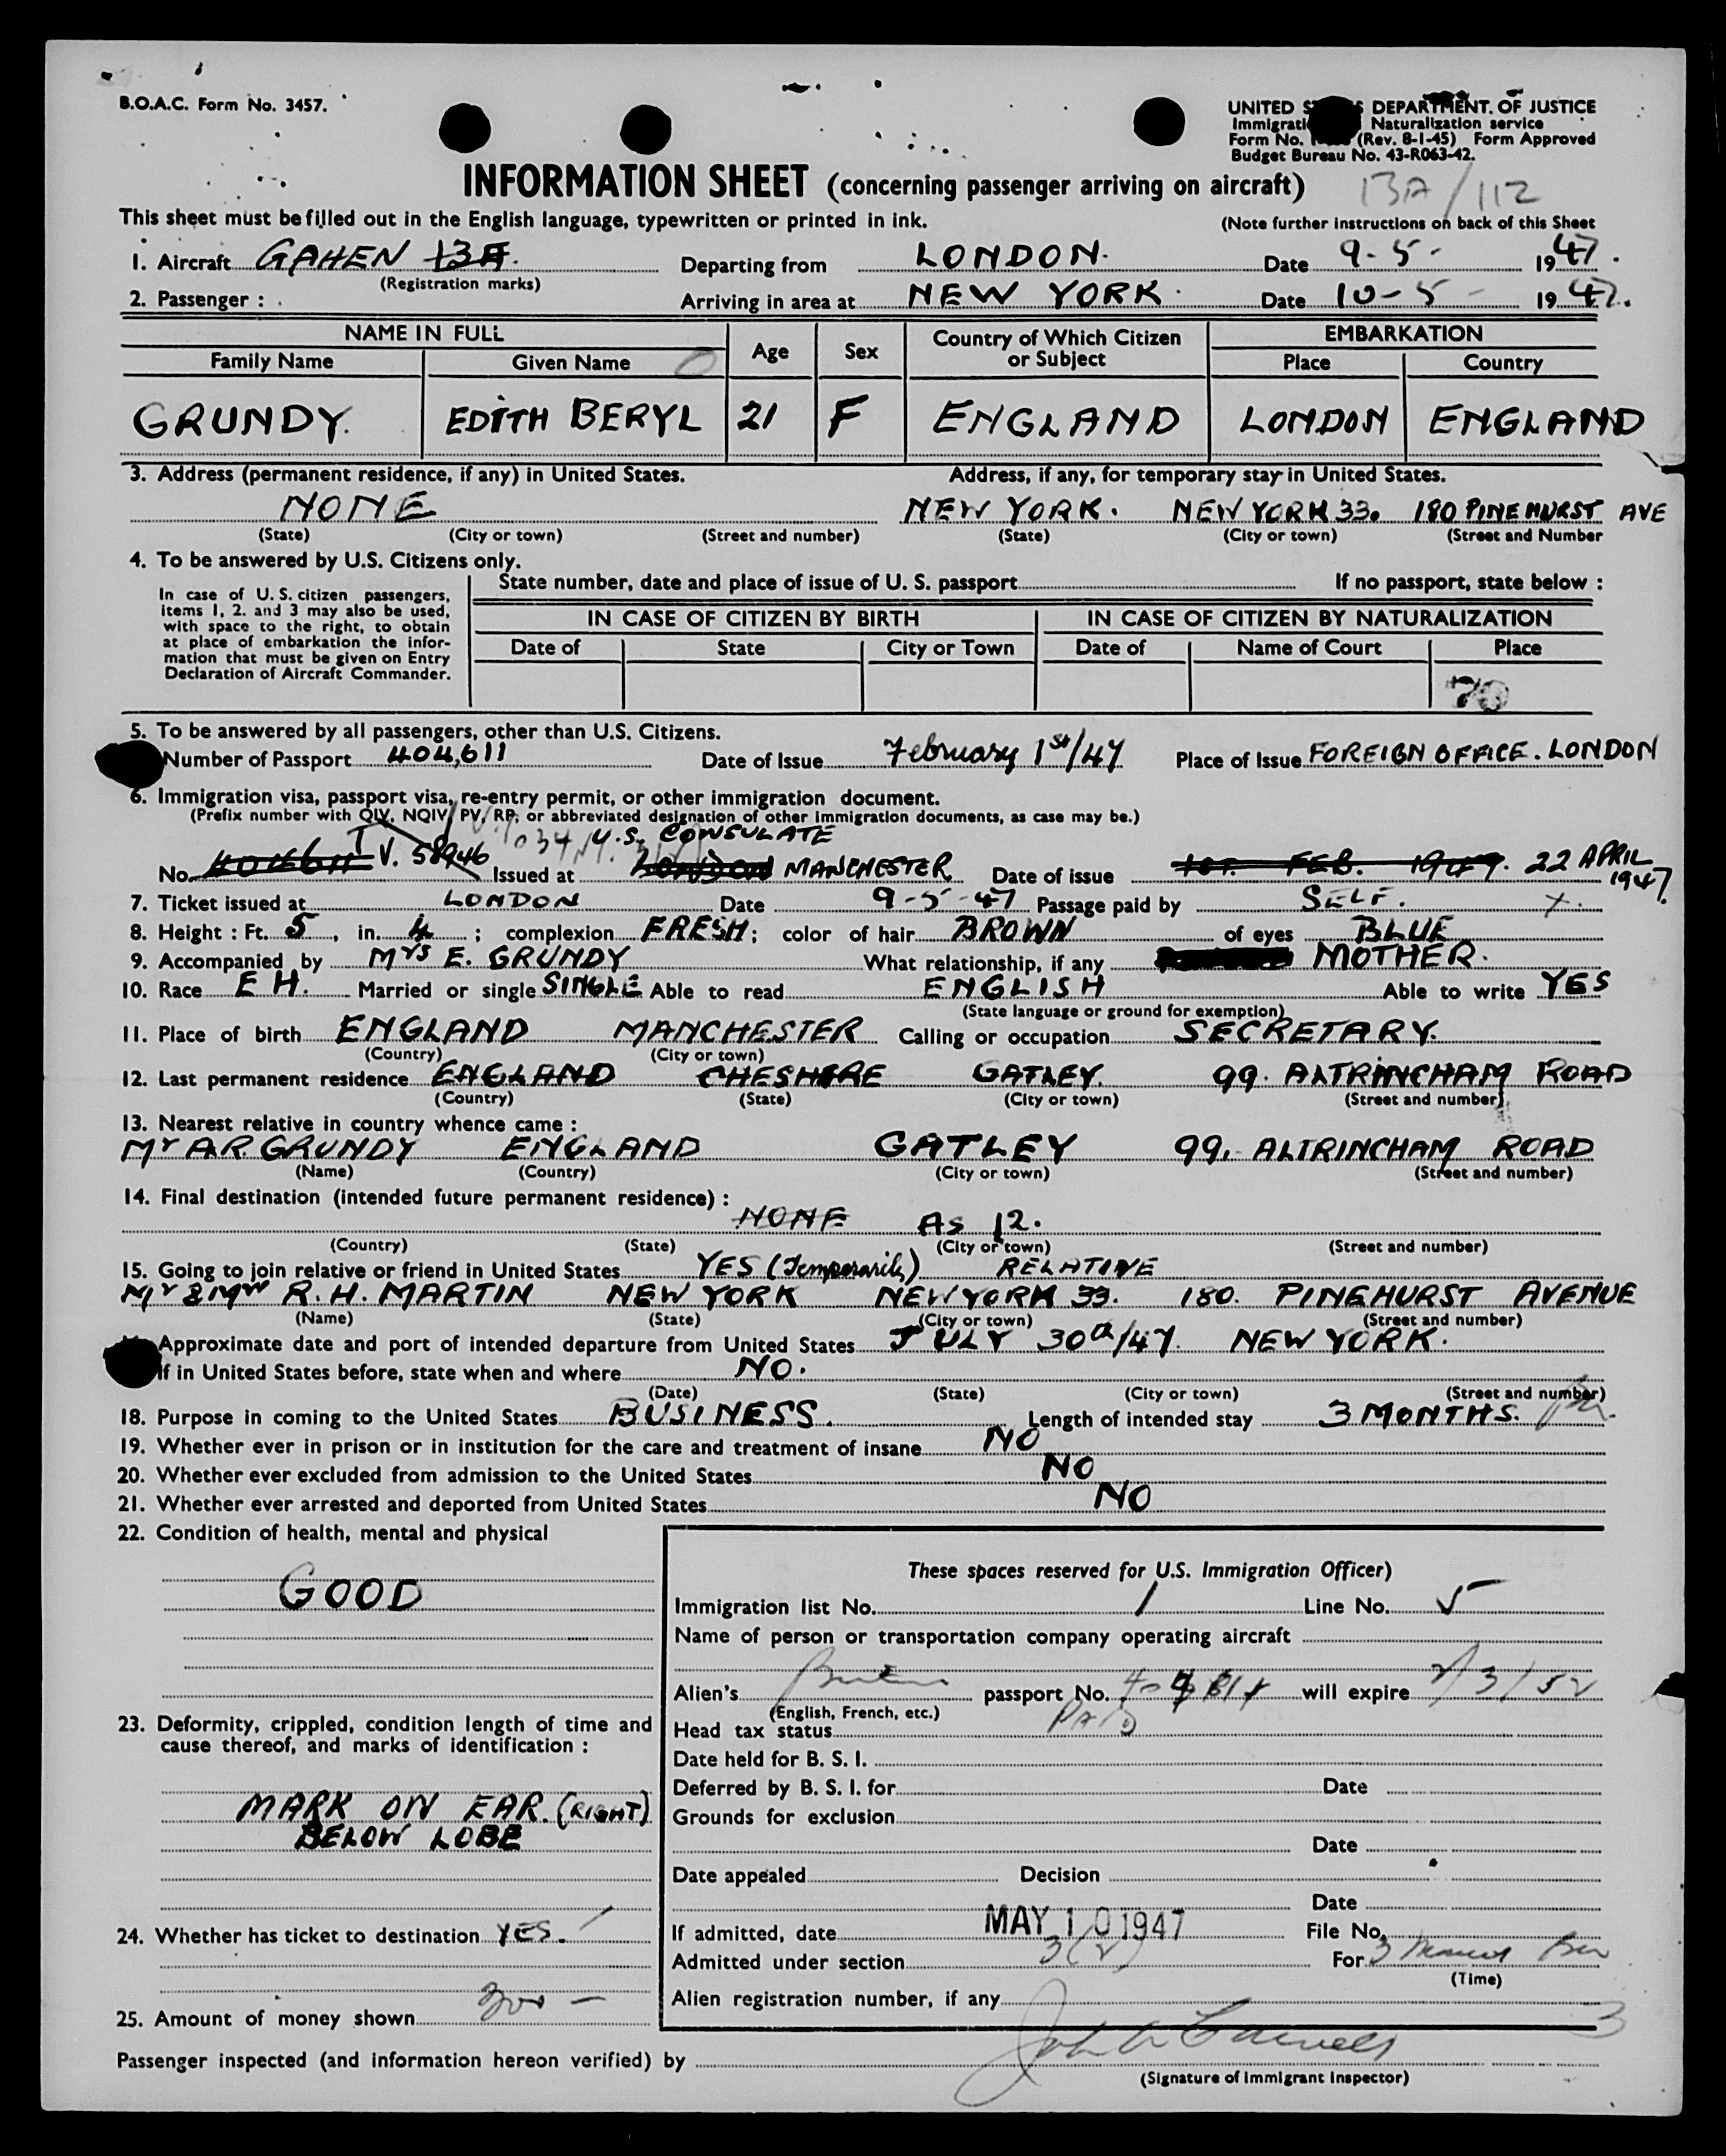 B.O.A.C. Form No. 3457.
UNITED DEPARTMENT. OF JUSTICE
Naturalization service
Form No. (Rev. 8-1-45) Form Approved
Budget Bureau No. 43-R063-42.
INFORMATION SHEET (concerning passenger arriving on aircraft) 13A/112
This sheet must be filled out in the English language, typewritten or printed in ink. (Note further instructions on back of this Sheet
1. Aircraft GAHEN 13A. Departing from LONDON. Date 9-5- 1947.
(Registration marks)
2. Passenger : Arriving in area at NEW YORK. Date 10-5- 1947.
NAME IN FULL Age Sex Country of Which Citizen or Subject EMBARKATION
Family Name Given Name Place Country
GRUNDY. EDITH BERYL 21 F ENGLAND LONDON ENGLAND
3. Address (permanent residence, if any) in United States. Address, if any, for temporary stay in United States.
NONE NEW YORK. NEW YORK 33. 180 PINEHURST AVE
(State) (City or town) (Street and number) (State) (City or town) (Street and Number
4. To be answered by U.S. Citizens only.
In case of U.S. citizen passengers,
items 1, 2. and 3 may also be used,
with space to the right, to obtain
at place of embarkation the infor-
mation that must be given on Entry
Declaration of Aircraft Commander.
State number, date and place of issue of U. S. passport If no passport, state below :
IN CASE OF CITIZEN BY BIRTH IN CASE OF CITIZEN BY NATURALIZATION
Date of State City or Town Date of Name of Court Place
70
5. To be answered by all passengers, other than U.S. Citizens.
Number of Passport 404,611 Date of Issue February 1st/47 Place of Issue FOREIGN OFFICE. LONDON
6. Immigration visa, passport visa, re-entry permit, or other immigration document.
(Prefix number with QIV, NQIV, PV, RP, or abbreviated designation of other immigration documents, as case may be.)
U.S. CONSULATE
No. 404611 V. 58946 Issued at LONDON MANCHESTER Date of issue 1ST. FEB. 1947. 22 APRIL 1947.
7. Ticket issued at LONDON Date 9-5-47 Passage paid by SELF. x.
8. Height : Ft. 5, in. 4 ; complexion FRESH; color of hair BROWN of eyes BLUE
9. Accompanied by Mrs E. GRUNDY What relationship, if any MOTHER.
10. Race E H. Married or single SINGLE Able to read ENGLISH Able to write YES
(State language or ground for exemption)
11. Place of birth ENGLAND MANCHESTER Calling or occupation SECRETARY.
(Country) (City or town)
12. Last permanent residence ENGLAND CHESHIRE GATLEY. 99. ALTRINCHAM ROAD
(Country) (State) (City or town) (Street and number)
13. Nearest relative in country whence came :
Mr A.R. GRUNDY ENGLAND GATLEY 99. ALTRINCHAM ROAD
(Name) (Country) (City or town) (Street and number)
14. Final destination (intended future permanent residence) :
NONE AS 12.
(Country) (State) (City or town) (Street and number)
15. Going to join relative or friend in United States YES (Temporarily) RELATIVE
Mr & Mrs R.H. MARTIN NEW YORK NEW YORK 33. 180. PINEHURST AVENUE
(Name) (State) (City or town) (Street and number)
Approximate date and port of intended departure from United States JULY 30th/47. NEW YORK.
If in United States before, state when and where NO.
(Date) (State) (City or town) (Street and number)
18. Purpose in coming to the United States BUSINESS. Length of intended stay 3 MONTHS.
19. Whether ever in prison or in institution for the care and treatment of insane NO
20. Whether ever excluded from admission to the United States NO
21. Whether ever arrested and deported from United States NO
22. Condition of health, mental and physical
GOOD
23. Deformity, crippled, condition length of time and
cause thereof, and marks of identification :
MARK ON EAR. (RIGHT)
BELOW LOBE
24. Whether has ticket to destination YES.
25. Amount of money shown
These spaces reserved for U.S. Immigration Officer)
Immigration list No. 1 Line No. 5
Name of person or transportation company operating aircraft
Alien's passport No. will expire 2/3/52
(English, French, etc.)
Head tax status PAID
Date held for B. S. I.
Deferred by B. S. I. for Date
Grounds for exclusion
Date
Date appealed Decision
Date
If admitted, date MAY 10 1947 File No.
Admitted under section 3(2) For 3
(Time)
Alien registration number, if any
3
Passenger inspected (and information hereon verified) by
(Signature of Immigrant Inspector)